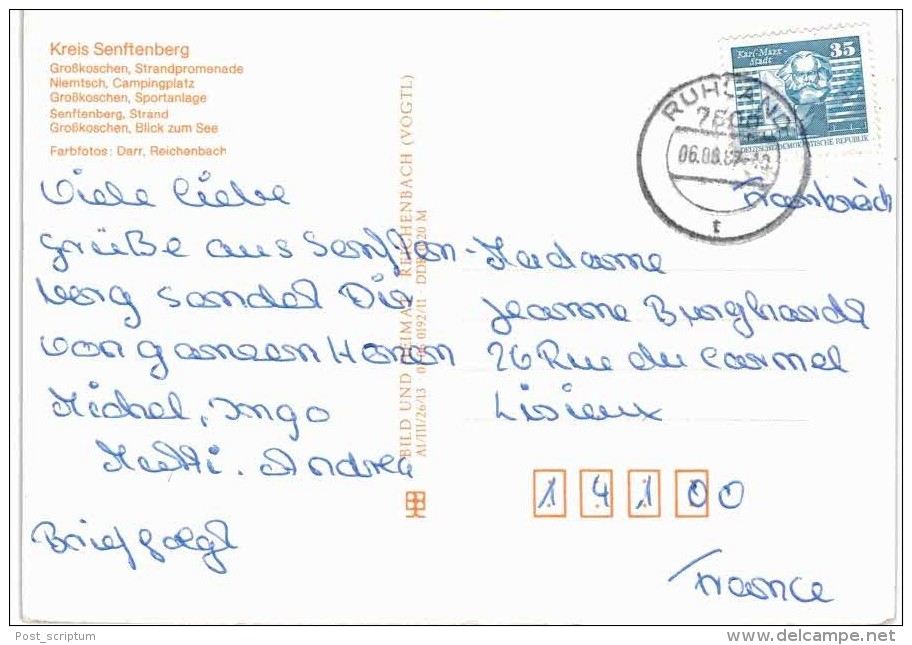 Kreis Senftenberg
Großkoschen, Strandpromenade
Niemtsch, Campingplatz
Großkoschen, Sportanlage
Senftenberg, Strand
Großkoschen, Blick zum See
Farbfotos: Darr, Reichenbach
Viele liebe
Grüße aus Senften-
berg sendet Dir
von ganzem Herzen
Michel, Ingo
Matti. Andrea
Brief folgt
BILD UND HEIMAT REICHENBACH (VOGTL)
A1/III/26/13 0192/11 DDR 0,20 M
Karl-Marx-
Stadt
35
DEUTSCHE DEMOKRATISCHE REPUBLIK
RUHLAND
06.08.
t
Frankreich
Madame
Jeanne Burghardt
26 Rue du Carmel
Lisieux
14100
France
Post_scriptum
www.delcampe.net